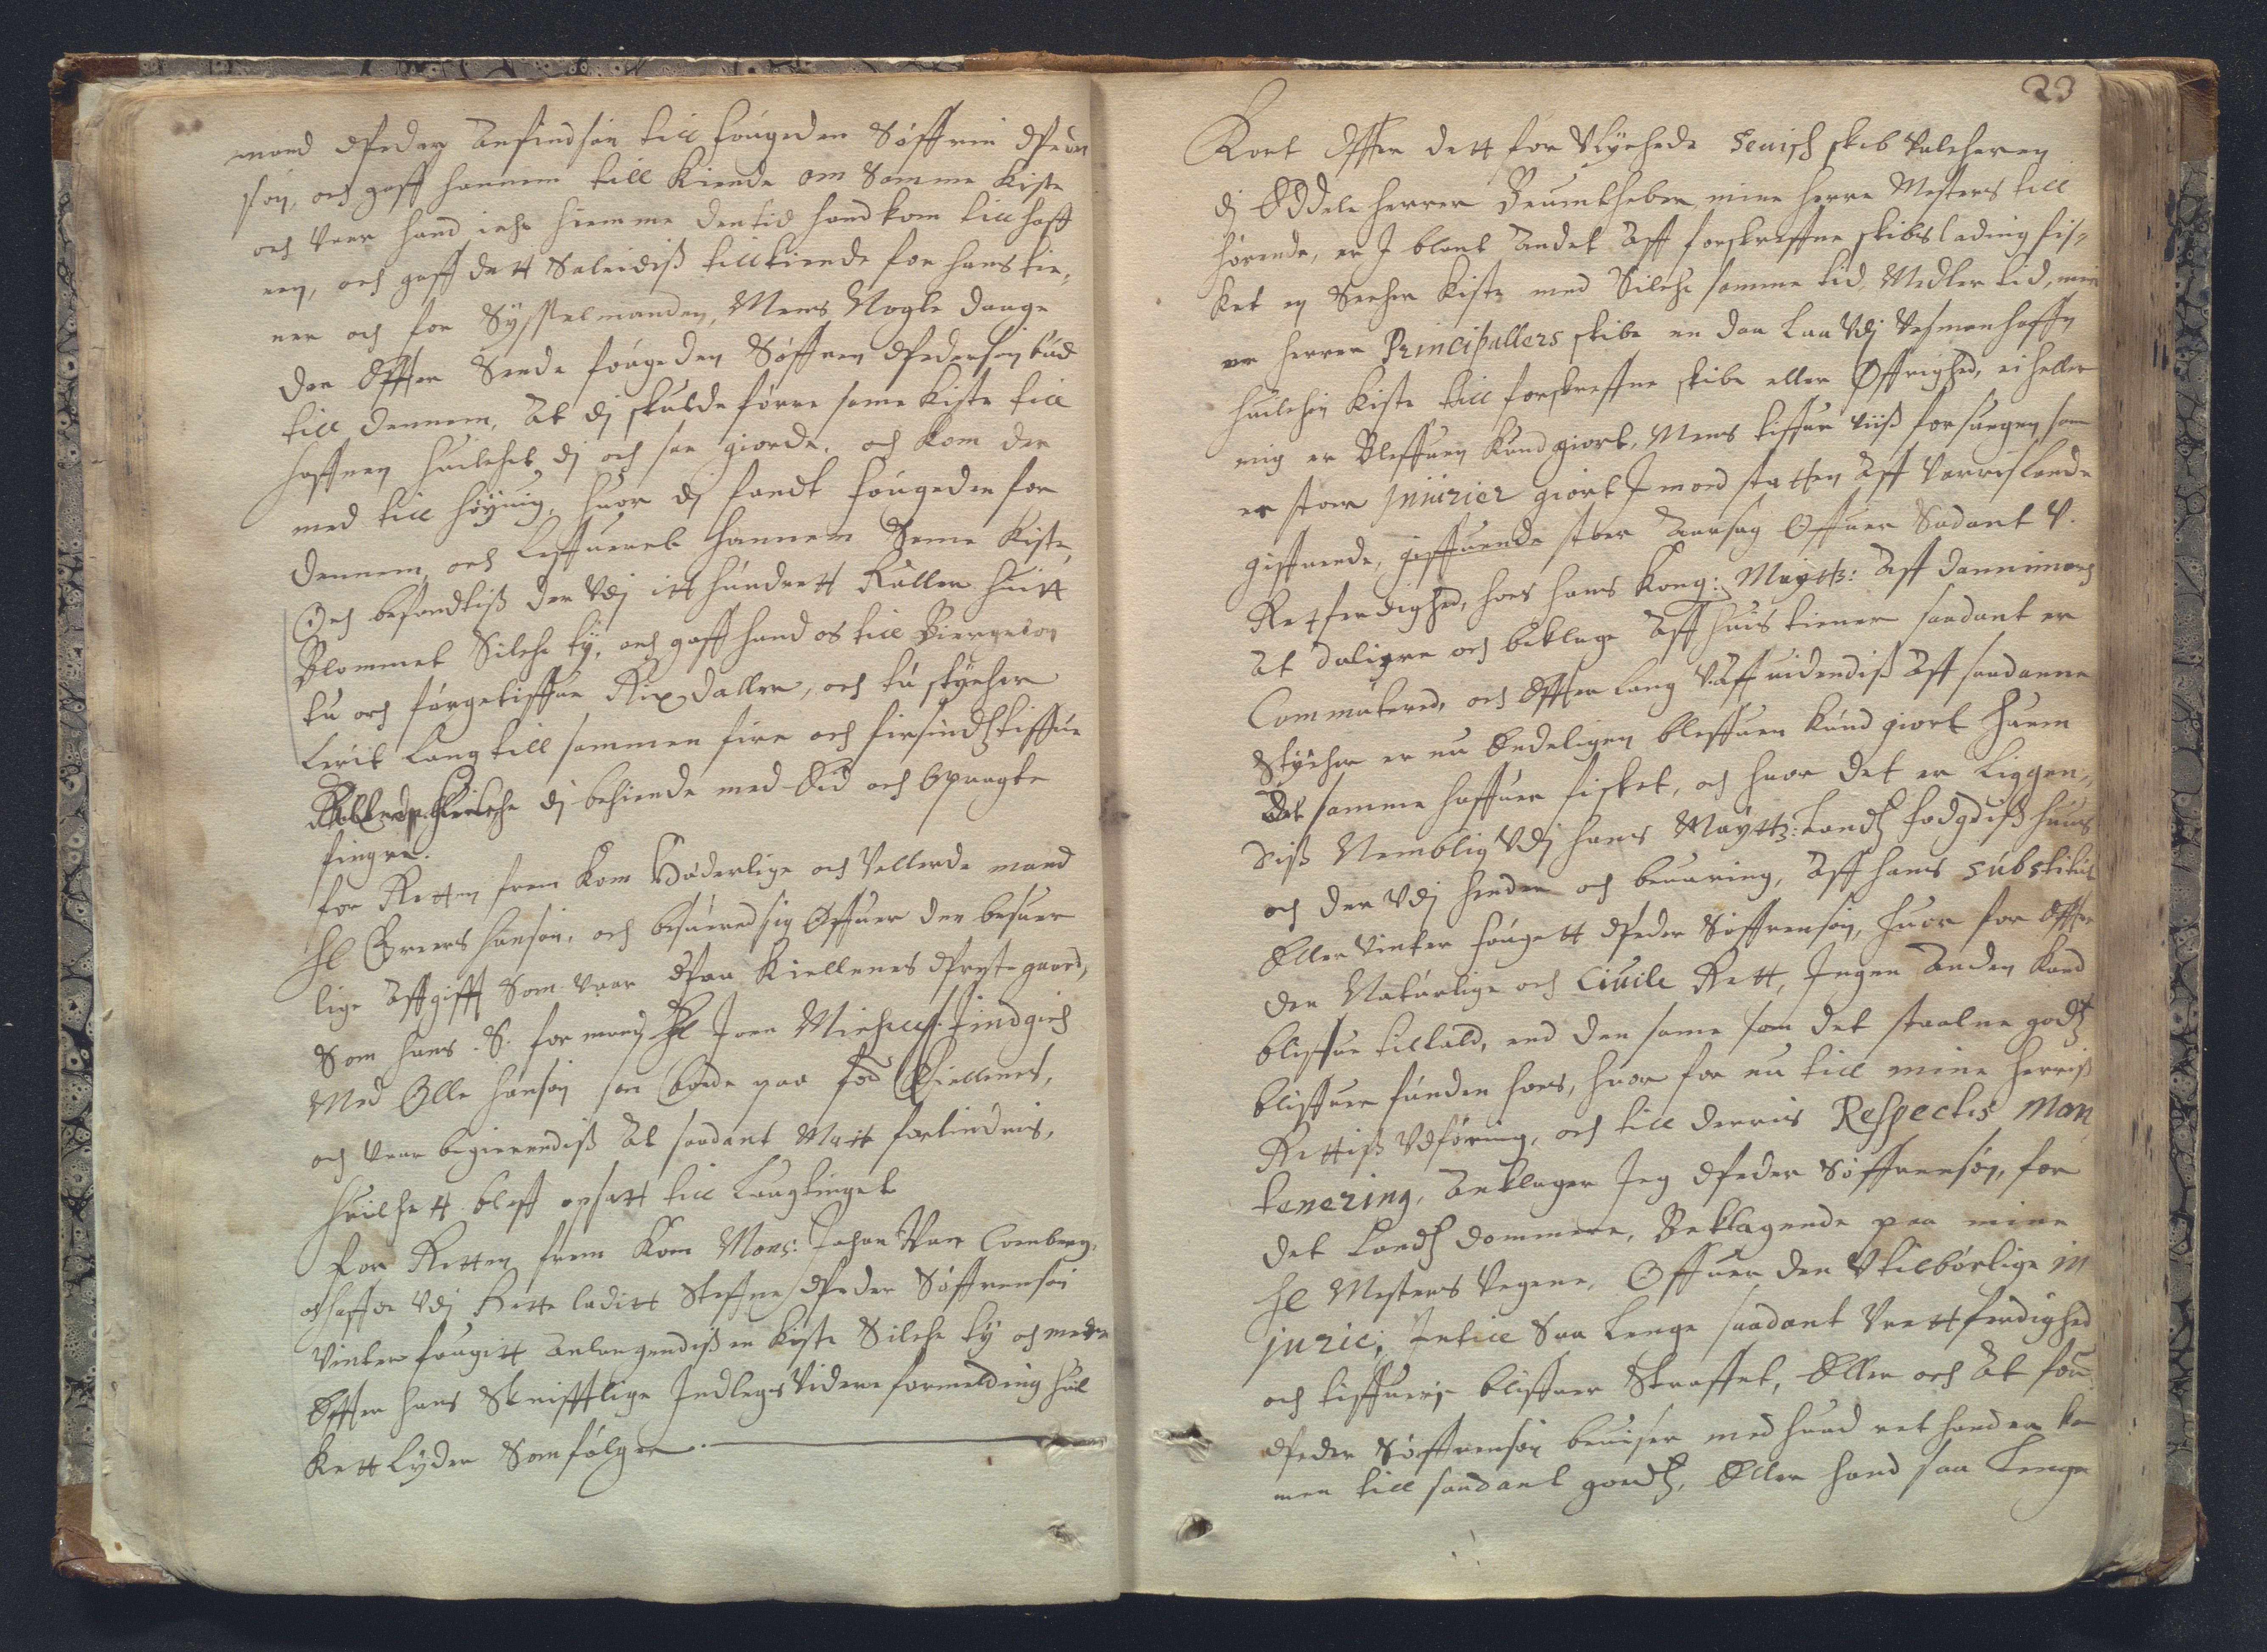 mand Peder Ansindsøn till fougeden Søffren Peder
søn, och gaff hannem till kiende om samme kiste
och vaar hand iche hiemme den tid hand kom till haff
nen, och gaff dett salediß tillkiende for hans tie-
ner och for Sysselmanden, Mens Nogle dauge
der effter sende fougeden Søffren Pedersøn bud
till dennem, at dj skulde førre same kiste till
haffnen huilchet dj och saa giorde, och kom der
med till Høyuig, huor dj fandt fougeden for
dennem, och leffueret hannem same kiste,
Och befandtiß der vdj itt hundrett Ruller huitt
Blommet Silche tÿ, och gaff hand os till Biergeløn
tu och førgetiffue Rixdaller, och tu stÿcher
lerit lang till sammen fire och firsindstiffue
dj bekiende med Eid och opragte
fingre.
for Retten frem kom Hæderlige och Vellerde mand
Hl Gregers Hansøn, och besuered sig offuer den besuer
lige affgifft som vaar Paa Kiellenes Prestegaard,
som hans S. formand Hl Joen Michels: Jindgich
med Olle Hansøn som boede paa for Kiellenes,
och vaar begierendiß at saadant Matt forlindris,
huilchett bleff opsatt till Laugtinget
for Retten frem kom Mons: Johan Von Cornberg,
och haffde vdj Rette laditt Steffne Peder Søffrensøn
vinter fougitt anlangendiß en kiste Silche tÿ och mehre
Effter hans Skrifftlige Indlegs videre formelding huil
kett lÿder som følger.
23
Kort effter dett for vlÿchede skib Valcheren
dj Eddele herrer Beuinthebber mine herre Mesters till
hørende, er J blant andet aff forskreffne skibs lading fis-
ket en Secher kiste med Silche samme tid, Medler tid, min
er herrer Principallers skibe en daa laa vdj Vesmanhaffn
huilchen kiste till forskreffne skibe eller Øffrighed, ei heller
mig er bleffuen kundgiort, Mens tiffue viß forsuegen som
er stoer Iniurier giort J mod statten aff Vorres lande
giffuende, giffuende stoer aarsag offuer Sadant V.
Retferdighed, hos hans Kong: Maytts: aff Dannimarch
at doligere och beklage aff huis tiener saadant er
Commitered, och effter lang vaffuidendiß aff saadanne
Stÿcher er nu endeligen bleffuen kundgiort huem
det samme haffuer fisket, och huor det er liggen-
diß Nemblig vdj hans Maytts: Lands fodgdiß huus
och der vdj hender och beuaring, aff hans substitut
Eller Vinter fougett Peder Søffrensøn, huor for effter
den Naturlige och Ciuile Rett, Ingen anden kand
bliffue tiltald, end den same som det staalne gods
bliffuer funden hoes, huor for nu till mine herriß
Rettiß vdføring, och till derris Respectis Man
tenering, anklager Jeg Peder Søffrensøn, for
det Lands dommere, Beklagende paa mine
Hl Mesters vegene, offuer den vtilbørlige in
jurie, Intill saa lenge saadant Vrettferdighed
och tiffuerj bliffuer straffet, Eller och at for:
Peder Søffrensøn beuiser med huad ret hand er ko
men till saadant gods, Eller hand saa lenge